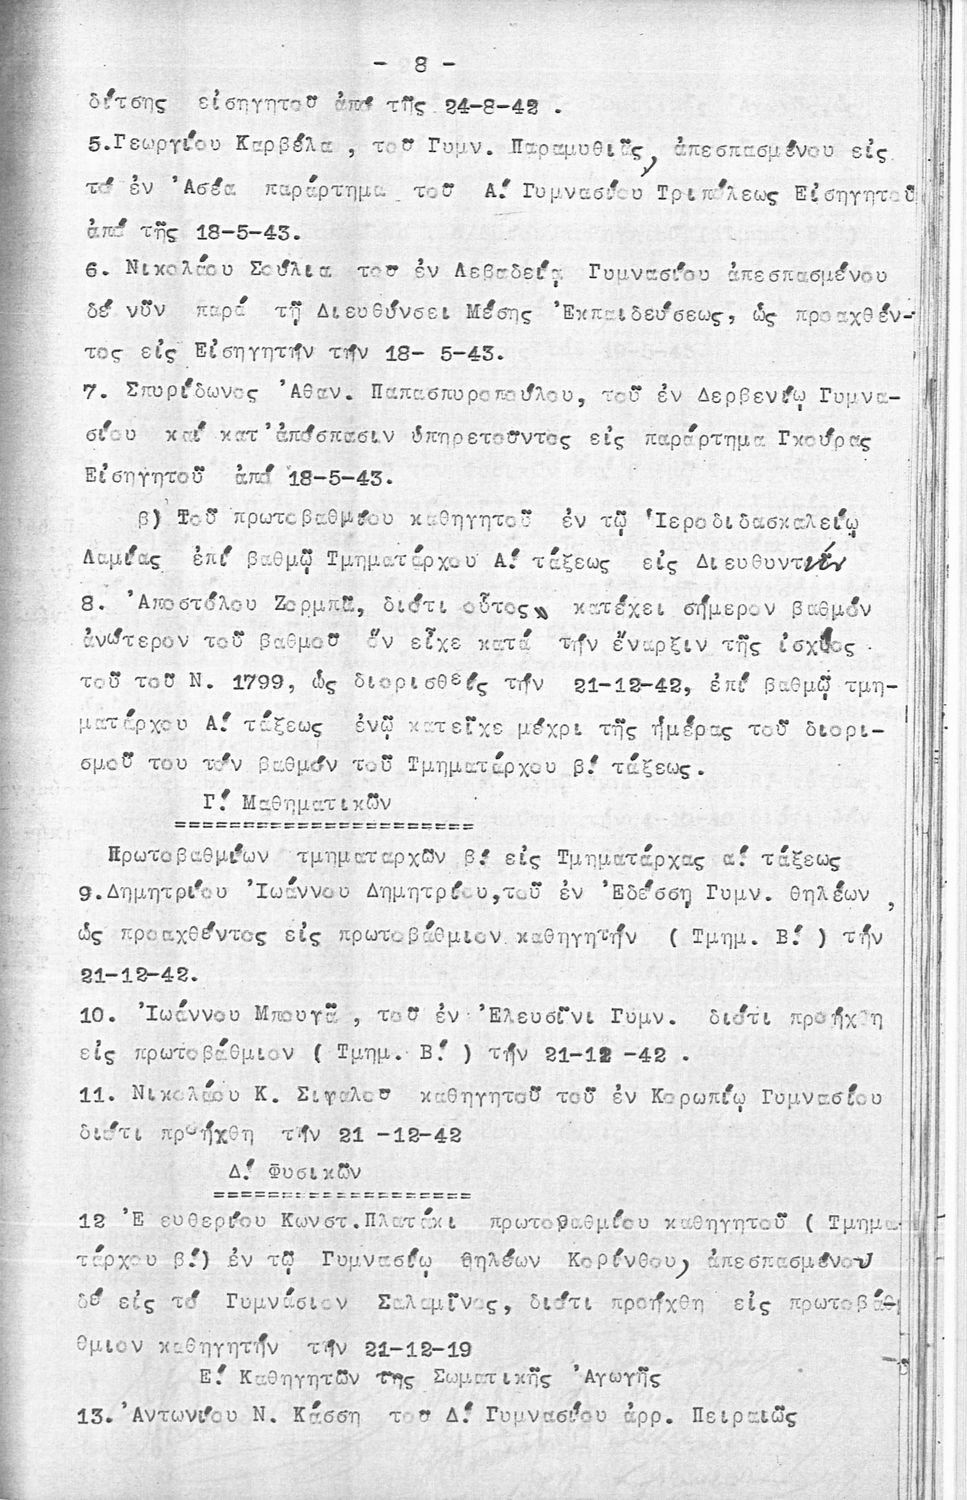 - 8 -
δίτσης εἰσηγητοῦ ἀπό τῆς 24-8-42 .
5.Γεωργίου Καρβέλα , τοῦ Γυμν. Παραμυθιᾶς, ἀπεσπασμένου εἰς
τό ἐν 'Ασέα παράρτημα τοῦ Α! Γυμνασίου Τριπόλεως Εἰσηγητοῦ
ἀπό τῆς 18-5-43.
6. Νικολάου Σούλια του ἐν Λεβαδείᾳ Γυμνασίου ἀπεσπασμένου
δέ νῦν παρά τῇ Διευθύνσει Μέσης 'Εκπαιδεύσεως, ὡς προαχθέν-
τος εἰς Εἰσηγητήν τήν 18- 5-43.
7. Σπυρίδωνος 'Αθαν. Παπασπυροπούλου, τοῦ ἐν Δερβενίῳ Γυμνα-
σίου καί κατ'ἀπόσπασιν ὑπηρετοῦντος εἰς παράρτημα Γκούρας
Εἰσηγητοῦ ἀπό 18-5-43.
β) Τοῦ πρωτοβαθμίου καθηγητοῦ ἐν τῷ 'Ιεροδιδασκαλείῳ
Λαμίας ἐπί βαθμῷ Τμηματάρχου Α! τάξεως εἰς Διευθυντήν
8. 'Αποστόλου Ζορμπᾶ, διότι οὗτος κατέχει σήμερον βαθμόν
ἀνώτερον τοῦ βαθμοῦ ὅν εἶχε κατά τήν ἔναρξιν τῆς ἰσχύος
τοῦ τοῦ Ν. 1799, ὡς διορισθείς τήν 21-12-42, ἐπί βαθμῷ τμη-
ματάρχου Α! τάξεως ἐνῷ κατεῖχε μέχρι τῆς ἡμέρας τοῦ διορι-
σμοῦ του τόν βαθμόν τοῦ Τμηματάρχου β! τάξεως.
Γ! Μαθηματικῶν
======================
Πρωτοβαθμίων τμηματαρχῶν β! εἰς Τμηματάρχας α! τάξεως
9.Δημητρίου 'Ιωάννου Δημητρίου,τοῦ ἐν 'Εδέσσῃ Γυμν. θηλέων ,
ὡς προαχθέντος εἰς πρωτοβάθμιον καθηγητήν ( Τμημ. Β! ) τήν
21-12-42.
10. 'Ιωάννου Μπουγᾶ , τοῦ ἐν 'Ελευσῖνι Γυμν. διότι προήχθη
εἰς πρωτοβάθμιον ( Τμημ. Β! ) τήν 21-12 -42 .
11. Νικολάου Κ. Σιγαλου καθηγητοῦ τοῦ ἐν Κορωπίῳ Γυμνασίου
διότι προήχθη τήν 21 -12-42
Δ! Φυσικῶν
===================
12 'Ε ευθερίου Κωνστ.Πλατάκι πρωτοβαθμίου καθηγητοῦ ( Τμημα-
τάρχου β!) ἐν τῷ Γυμνασίῳ θηλέων Κορίνθου, ἀπεσπασμένου
δέ εἰς τό Γυμνάσιον Σαλαμῖνος, διότι προήχθη εἰς πρωτοβά-
θμιον καθηγητήν τήν 21-12-19
Ε! Καθηγητῶν της Σωματικῆς 'Αγωγῆς
13.'Αντωνίου Ν. Κάσση του Δ! Γυμνασίου ἀρρ. Πειραιῶς